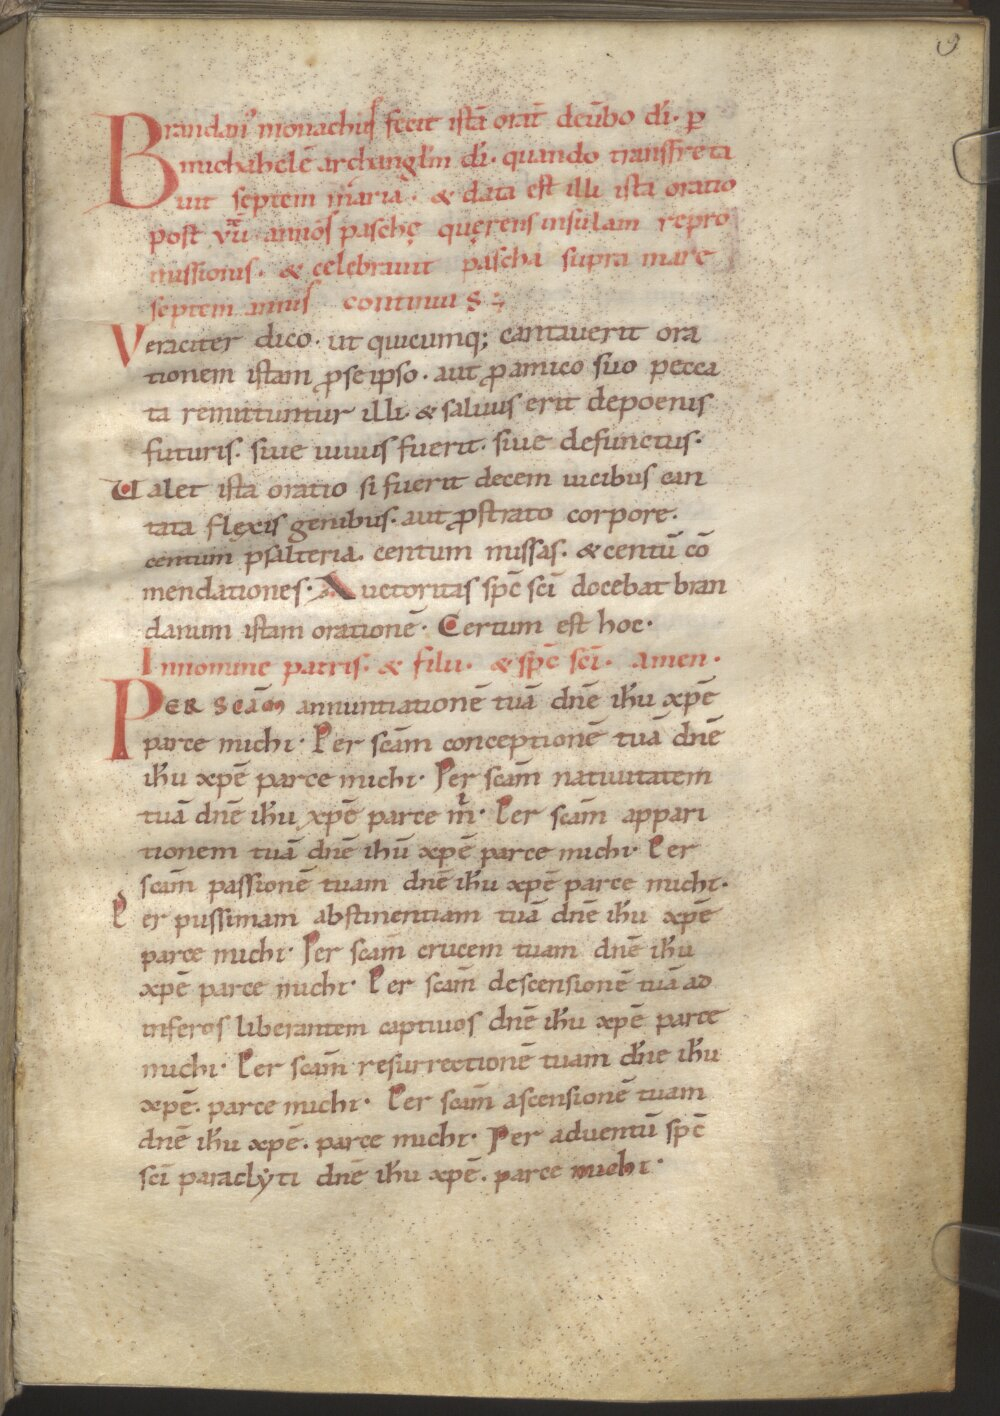 9
Brandan᾽ monachus fecit istā orat̄ deūbo dī. p̱
michahelē archangl̄m dī. quando transfreta
uit septem maria. & data est illi ista oratio
post vii annos paschę quęrens insulam repro
missionis. & celebrauit pascha supra mare
septem annis continuis:
Veraciter dico. ut quicumq; cantauerit ora
tionem istam ꝓ se ipso. aut ꝓ amico suo pecca
ta remittuntur illi. & saluus erit depoenis
futuris. siue uiuus fuerit. siue defunctus.
Ualet ista oratio si fuerit decem uicibus can
tata flexis genibus. aut ꝓstrato corpore.
centum psalteria. centum missas. & centū cō
mendationes. Auctoritas spc̄ scī docebat bran
danum istam orationē. Certum est hoc.
In nomine patris. & filii. & spc̄ scī. amen.
PER SCĀM annuntiationē tuā dnē ih̄u xpē
parce michi. Per scām conceptionē tuā dnē
ih̄u xpē parce michi. Per scām natiuitatem
tuā dnē ih̄u xpē parce m̄ⁱ. Per scām appari
tionem tuā dnē ihū xpē parce michi. Per
scām passionē tuam dnē ih̄u xpē parce michi.
Per piissimam abstinentiam tuā dnē ih̄u xpē
parce michi. Per scām crucem tuam dnē ih̄u
xpē parce michi. Per scām descensionē tuā ad
inferos liberantem captiuos dnē ih̄u xpē parce
michi. Per scām resurrectionē tuam dn̄e ih̄u
xpē. parce michi. Per scām ascensionē tuam
dnē ih̄u xpē. parce michi. Per aduentū spc̄
scī paraclyti dnē ih̄u xpē. parce michi.